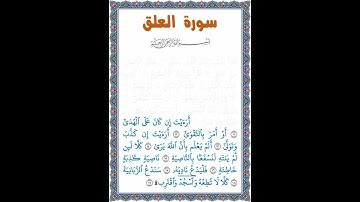 سورة العلق
بسم الله الرحمن الرحيم
أَرَءَيْتَ إِن كَانَ عَلَى ٱلْهُدَىٰٓ
١١ أَوْ أَمَرَ بِٱلتَّقْوَىٰٓ ١٢ أَرَءَيْتَ إِن كَذَّبَ
وَتَوَلَّىٰٓ ١٣ أَلَمْ يَعْلَم بِأَنَّ ٱللَّهَ يَرَىٰ ١٤ كَلَّا لَئِن
لَّمْ يَنتَهِ لَنَسْفَعًۢا بِٱلنَّاصِيَةِ ١٥ نَاصِيَةٍ كَٰذِبَةٍ
خَاطِئَةٍ ١٦ فَلْيَدْعُ نَادِيَهُۥ ١٧ سَنَدْعُ ٱلزَّبَانِيَةَ
١٨ كَلَّا لَا تُطِعْهُ وَٱسْجُدْ وَٱقْتَرِب ۩ ١٩